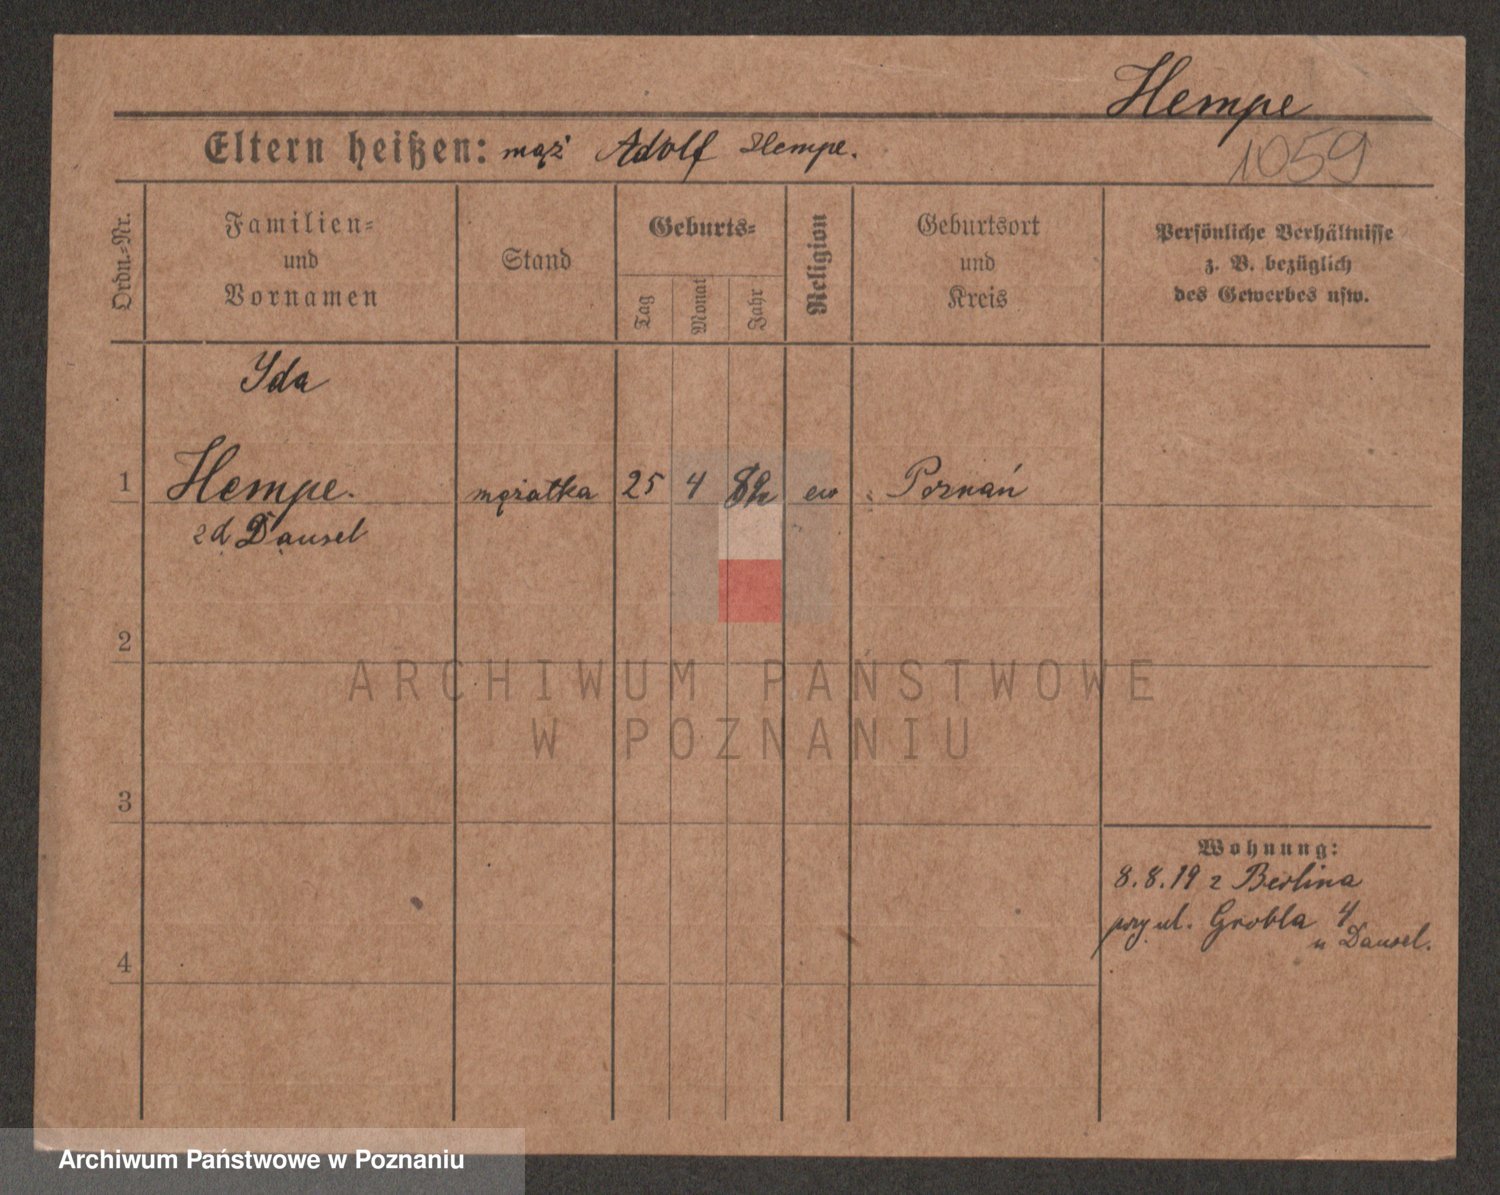 Hempe
1059
Eltern heißen: mąż Adolf Hempe.
Ordn.-Nr.
Familien- und Vornamen
Stand
Geburts-
Tag
Monat
Jahr
Religion
Geburtsort und Kreis
Persönliche Verhältnisse
z. B. bezüglich
des Gewerbes usw.
Yda
1 Hempe. mężatka 25 4 ew. Poznań
zd Dausel
2
ARCHIWUM PAŃSTWOWE
W POZNANIU
3
Wohnung:
8.8.19 z Berlina
przy ul. Grobla 4
u Dausel.
4
Archiwum Państwowe w Poznaniu